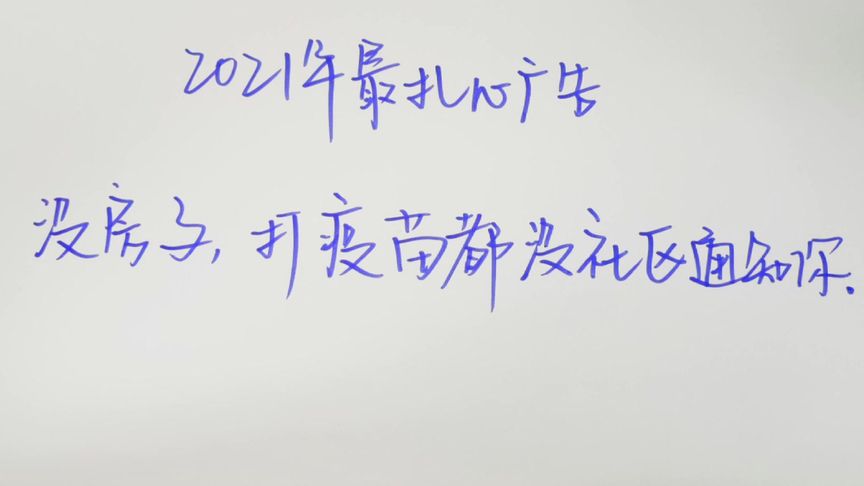 2021年最扎心广告
没房子,打疫苗都没社区通知你.